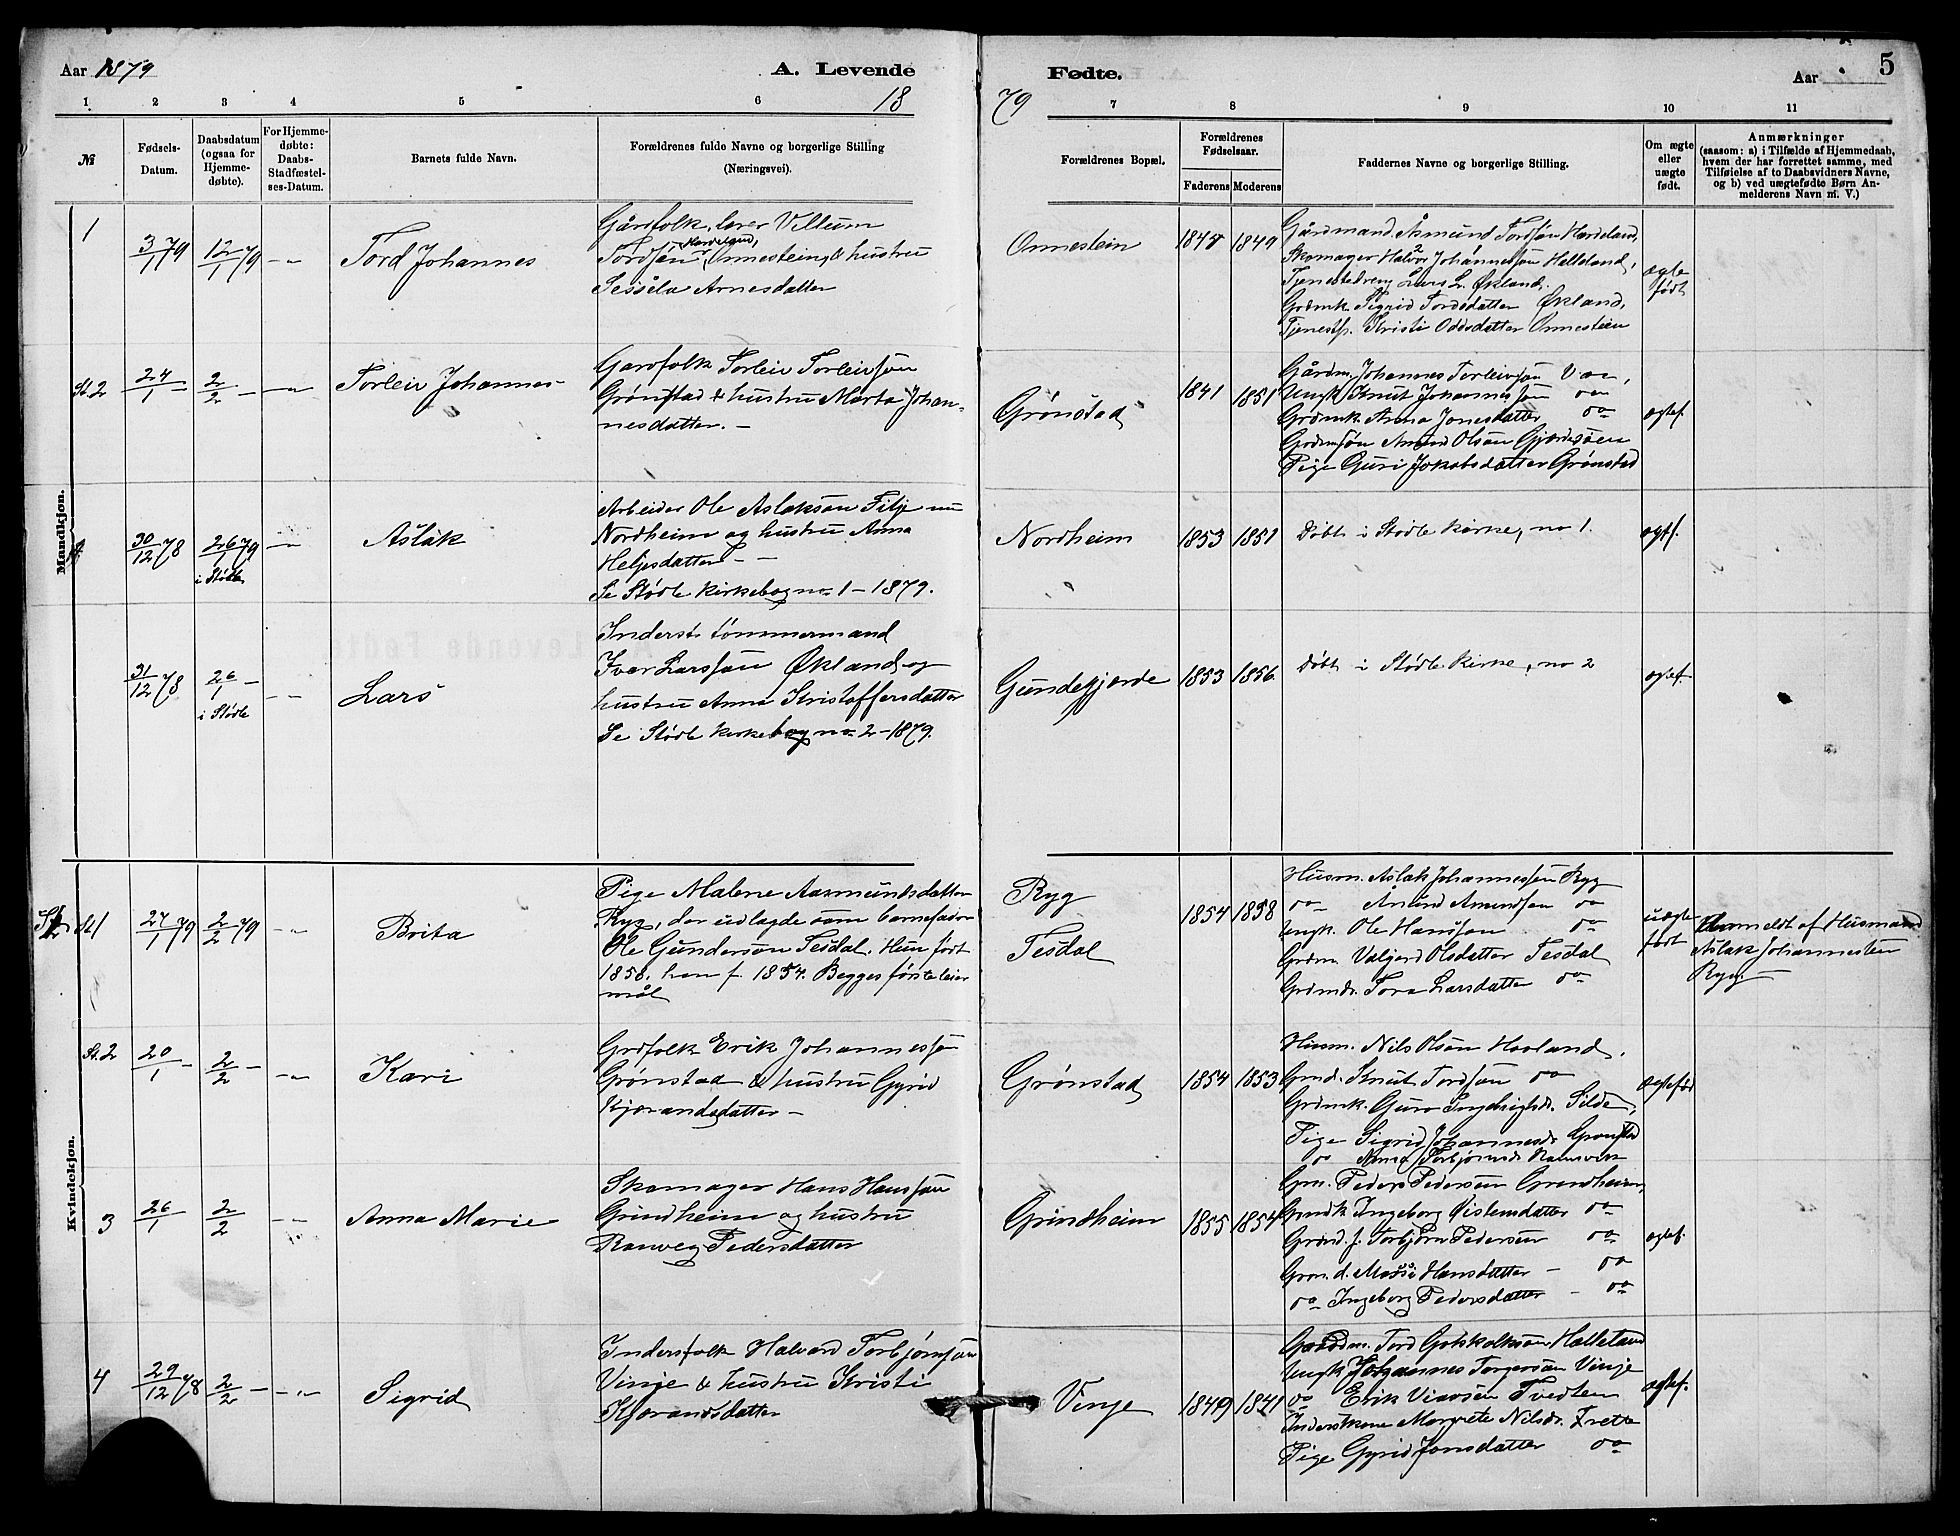 Aar 1879
A. Levende
18
Fødte.
79
Aar
5
1 2 3 4 5 6 7 8 9 10 11
№
Fødsels-
Datum.
Daabsdatum
(ogsaa for
Hjemme-
døbte).
For Hjemme-
døbte:
Daabs-
Stadfæstel-
ses-Datum.
Barnets fulde Navn.
Forældrenes fulde Navne og borgerlige Stilling
(Næringsvei).
Forældrenes Bopæl.
Forældrenes
Fødselsaar.
Faderens Moderens
Faddernes Navne og borgerlige Stilling.
Om ægte
eller
uægte
født.
Anmærkninger
(saasom: a) i Tilfælde af Hjemmedaab,
hvem der har forrettet samme, med
Tilføielse af to Daabsvidners Navne,
og b) ved uægtefødte Børn An-
melderens Navn m. V.)
Mandkjøn.
1
3/1 79
12/1 79
Tord Johannes
Gårdfolk, lærer Villum
Tordsøn Hardeland, Onnestein, & hustru
Sessela Arnesdatter
Onnestein
1849
Gårdmand Åsmund Tordsøn Hardeland,
Skomager Halvor Johannessøn Helleland,
Tjenestedreng Lars L. Økland.
Grdmk. Sigrid Tordsdatter Økland,
Tjenestp. Kristi Oddsdatter Onnestein
ægte
født
St. 2
24/1 -
2/2 -
Torleir Johannes
Gardfolk Torleir Torleirsøn
Grønstad & hustru Marta Johan-
nesdatter. -
Grønstad
1841
1851
Gårdm. Johannes Torleivsøn
Ungk. Knut Johannessøn do
Grdmk. Anna Jonesdatter do
Grdmsøn Amund Olsøn
Pige Guri Jakobsdatter Grønstad
ægtef.
30/12 78
26/1 79
i Stødle
Aslak
Arbeider Ole Aslaksøn Filje nu
Nordheim og hustru Anna
Heljesdatter -
Se Stødle kirkebog no 1 - 1879.
Nordheim
1853
1851
Døbt i Stødle kirke, no 1.
ægtf.
31/12 78
26/1 -
i Stødle
Lars
Inderst. tømmermand
Ivar Larssøn Økland og
hustru Anna Kristoffersdatter
Se Stødle kirkebog no 2 - 1879.
Gundegjerde
1853
1856.
Døbt i Stødle kirke, no 2
ægtef.
Kvindekjøn.
St. 1
27/1 79
2/2 79
Brita
Pige Malene Aasmundsdatter
Ryg, der udlagde som barnefader
Ole Gunderson Tesdal. Hun født
1858, han f. 1854. Begges første leier
mål
Ryg
Tesdal
1854
1858
Husm. Aslak Johannessøn Ryg
do Ånund Amundsøn do
Ungk. Ole Hanssøn do
Grdm. Valgjerd Olsdatter Tesdal
Grdmdr. Tora Larsdatter do
uægte
født
Anmeldt af Husmand
Aslak Johannessen
Ryg. -
St. 2
20/1 -
2/2 -
Kari
Grdfolk Erik Johannessøn
Grønstad & hustru Gyrid
Kjørandsdatter -
Grønstad
1854
1853
Husm. Nils Olsøn Haaland,
Grmd. Knut Tordsøn do
Grdmk. Guro Ingebrigtsdr. Silde,
Pige Sigrid Johannesdr. Grønstad
do Anna Torbjørnsdr.
ægtefød
3
26/1
2/2
Anna Marie
Skomager Hans Hanssøn
Grindheim og hustru
Ranveg Pedersdatter
Grindheim
1855
1854
Grm. Peder Pedersen Grindheim,
Grmdk. Ingeborg Øistensdatter do
Grdmd. s. Torbjørn Pedersen do
Grm. d. Massi Hansdatter - do
do Ingeborg Pedersdatter - do
ægtef.
4
29/12 78
2/2 -
Sigrid
Inderstfolk Halvard Torbjørnsøn
Vinje & hustru Kristi
Kjørandsdatter
Vinje
1849
1841
Gardm. Tord Gotskalksøn Helleland
Ungk. Johannes Torgersøn Vinje
do Erik Tvedten
Inderstkone Margrete Nilsdr. Frette
Pige Gyrid Jonsdatter do
ægtef.